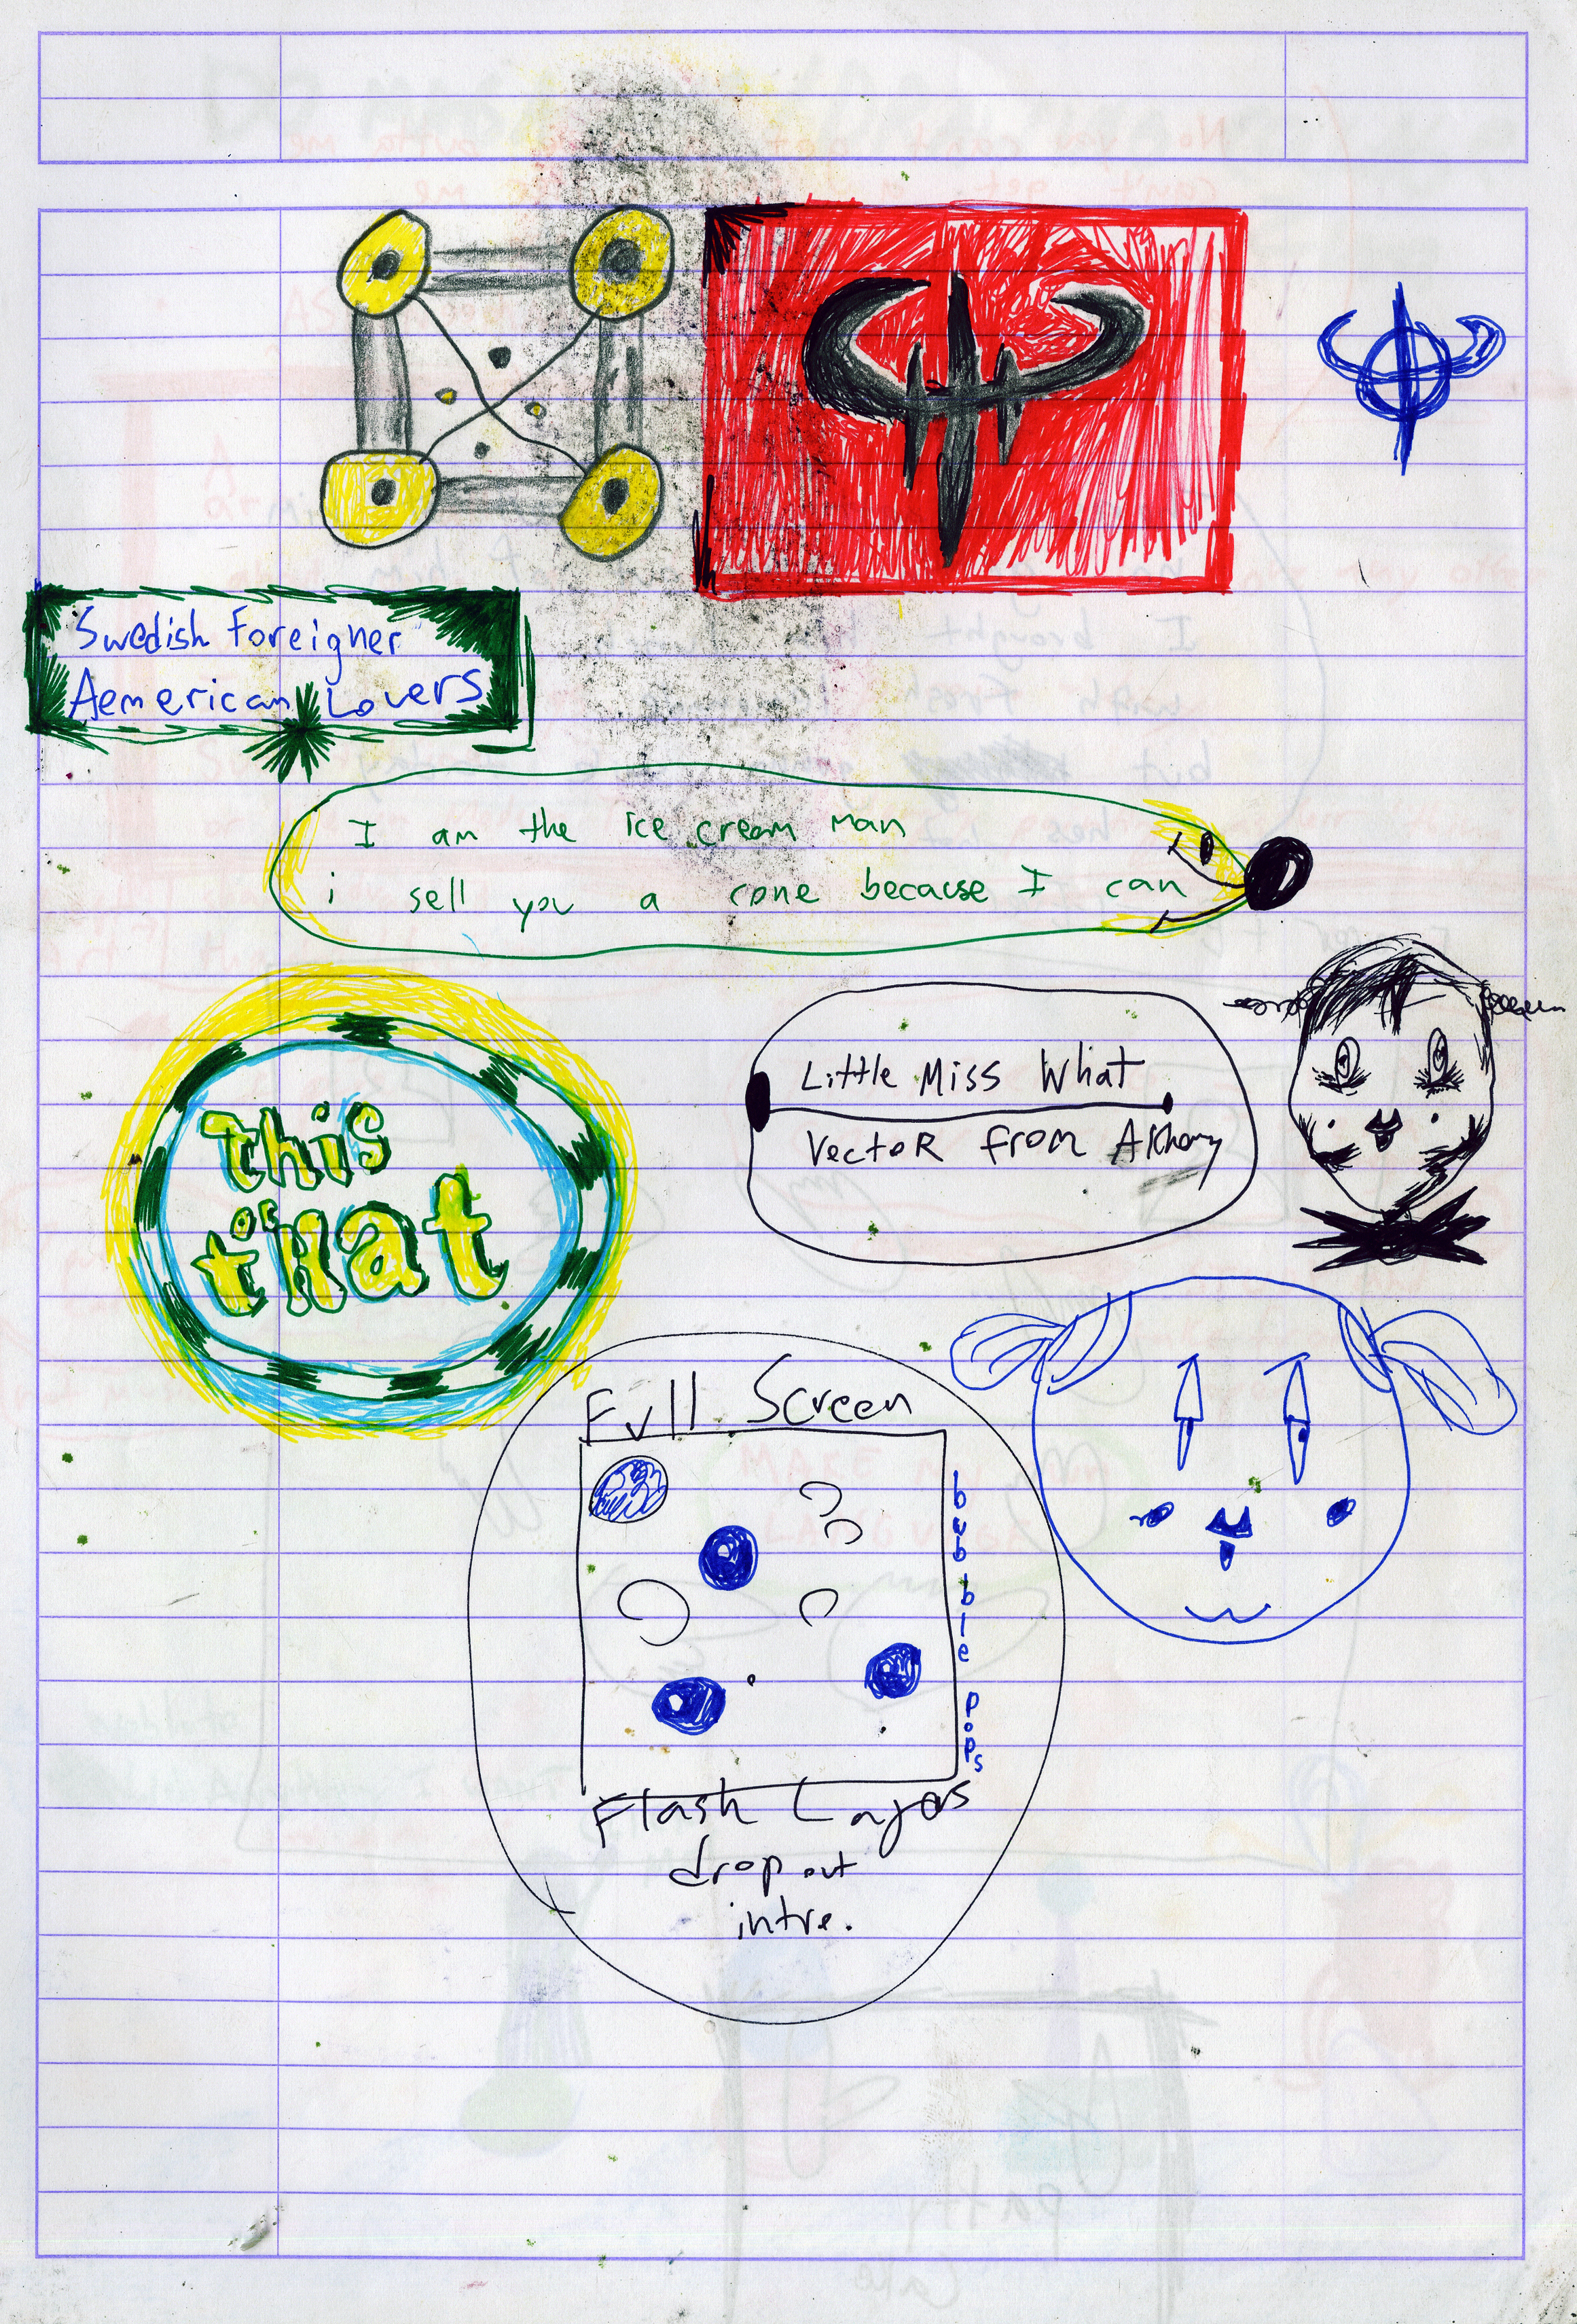 Swedish Foreigner
Aemerican Lovers
I am the ice cream man
i sell you a cone because I can
This
or
tHat
Little Miss What
VectoR from
Full Screen
bubble pops
Flash
drop out